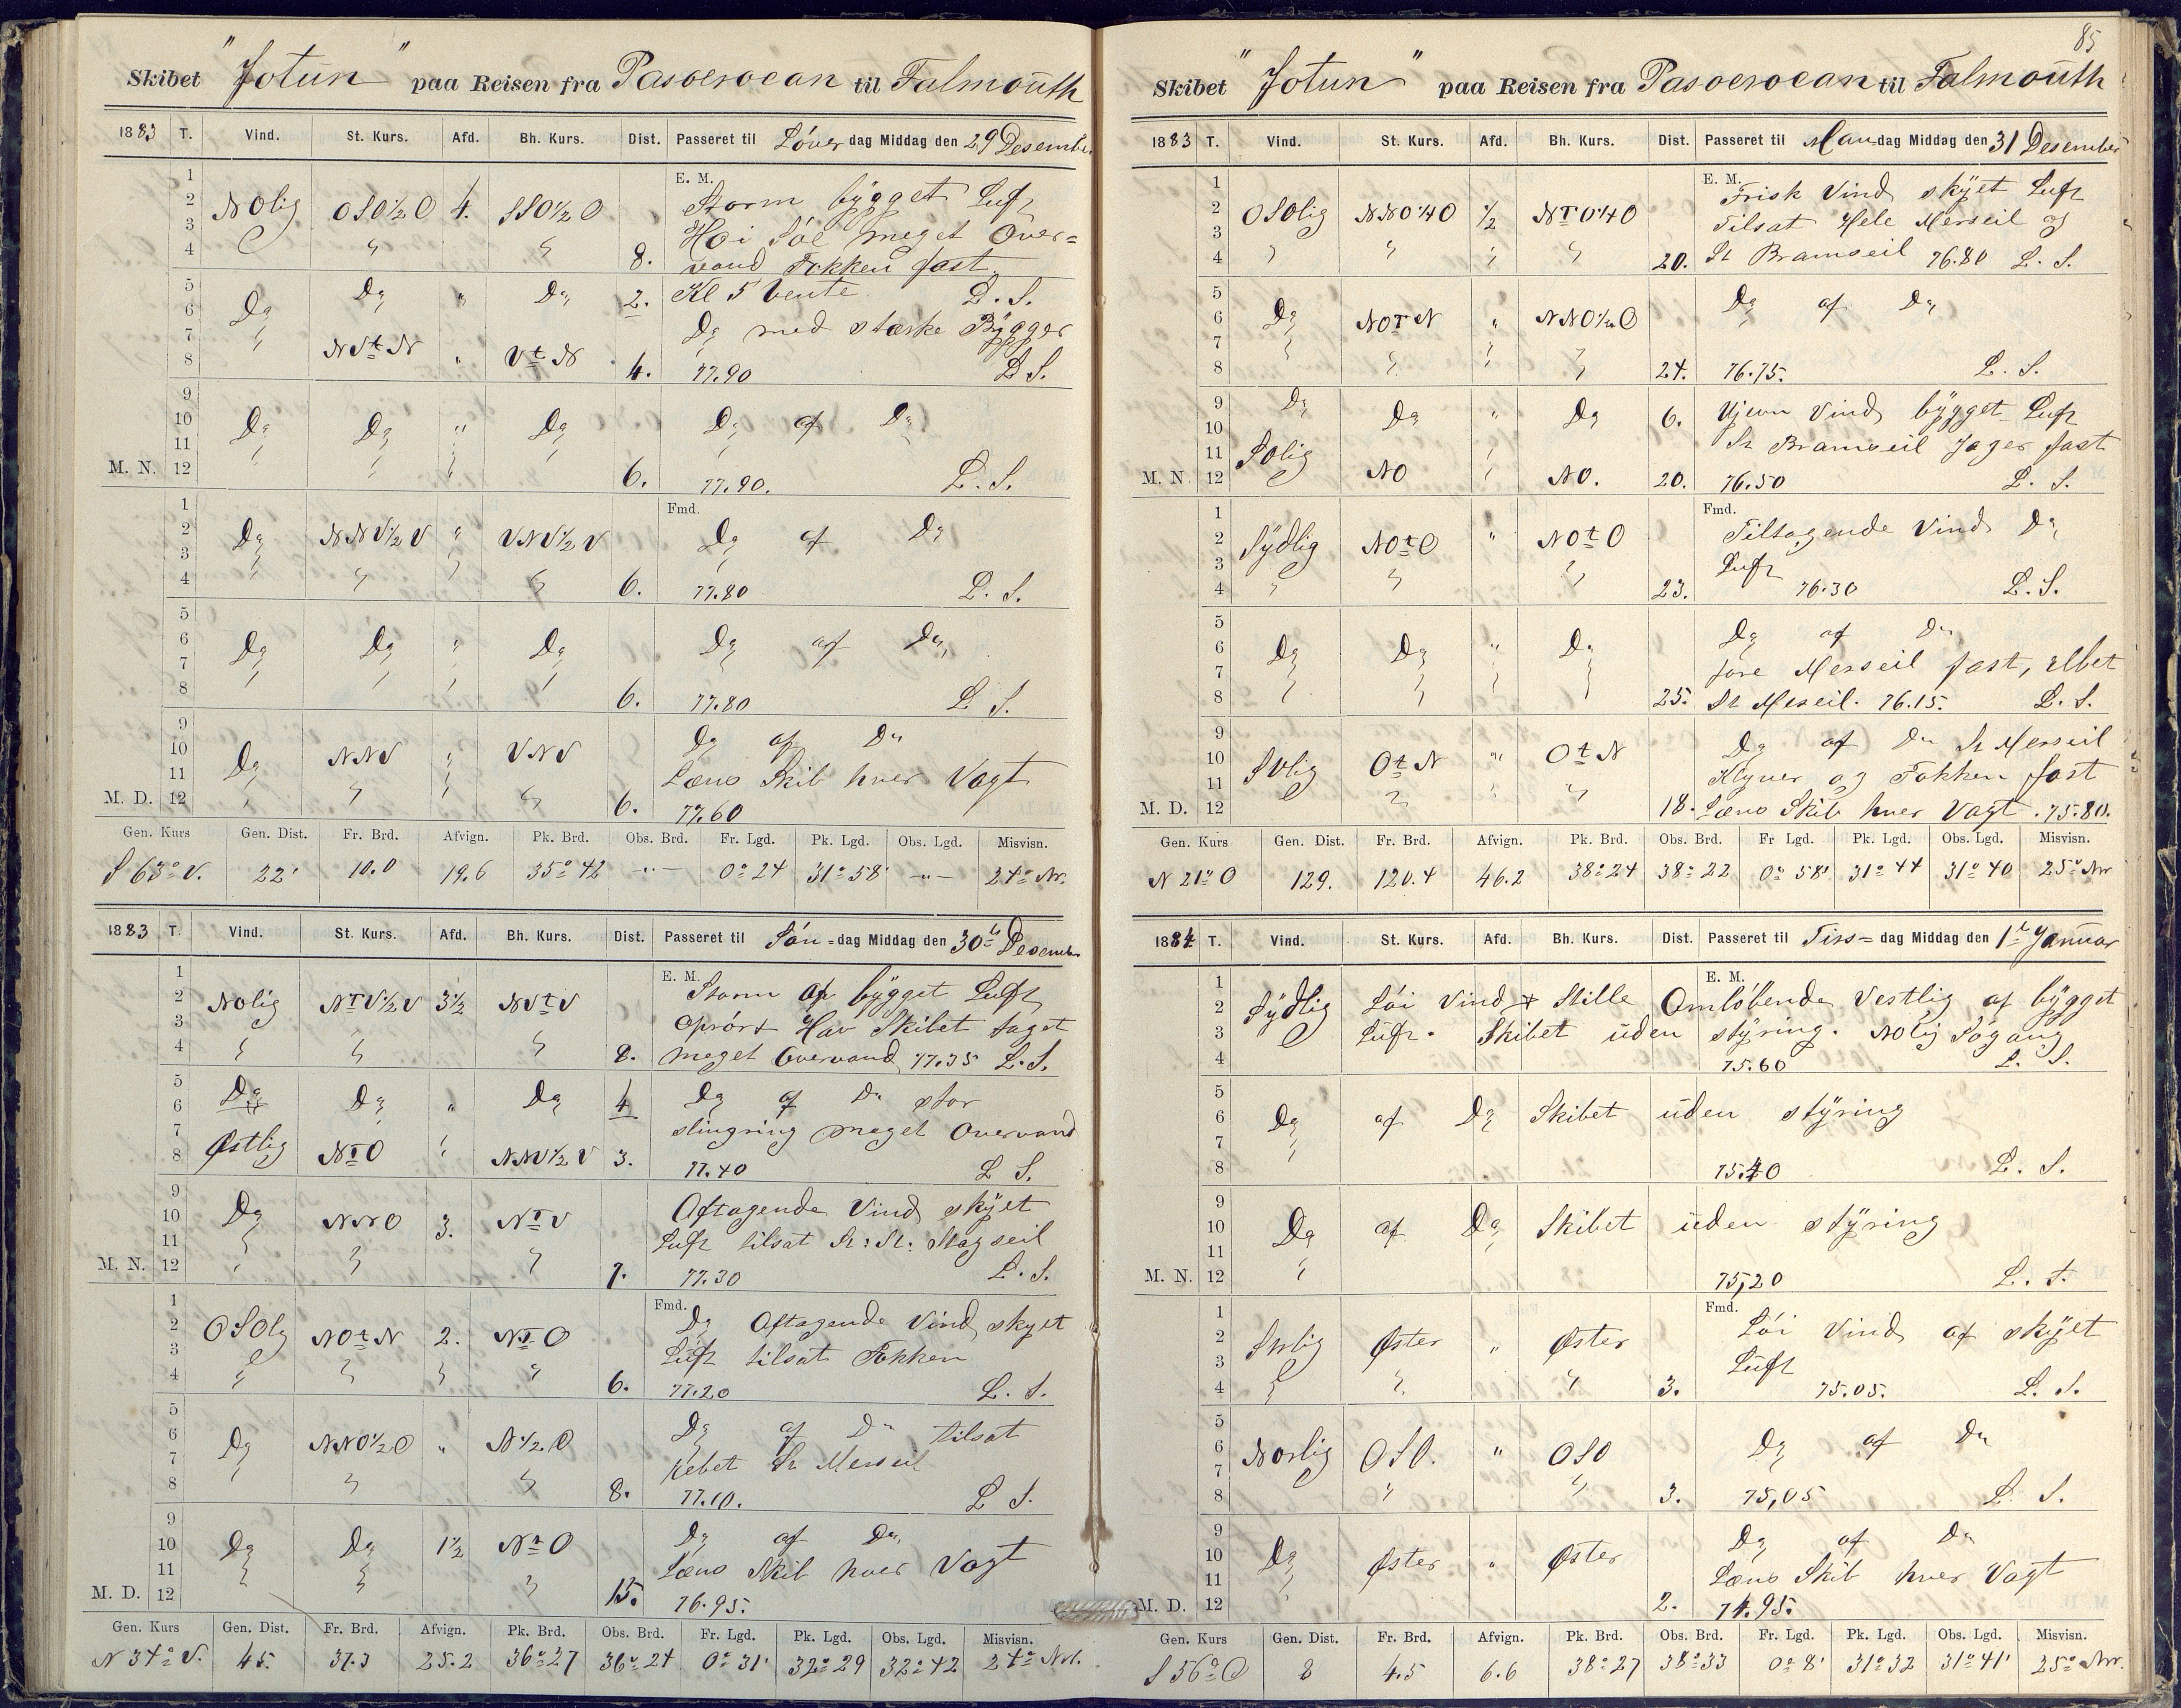 Skibet "Jotun" paa Reisen fra Pasoeroean til Falmouth
1883 T. Vind. St. Kurs. Afd. Bh. Kurs. Dist. Passeret til Löverdag Middag den 29 Desember
E. M.
1 2 3 4 NOlig OSO½O 4. SSO½O 8. Storm bygget Luft
Höi Söe meget Over=
vand Fokken fast
5 6 7 8 Do Do " Do 2. Kl 5 vente L. S.
Do med stærke Bygger
NVtN " VtN 4. 77.90 L S.
9 10 11 12 M. N. Do Do " Do 6. Do af Do
77.90. L. S.
Fmd.
1 2 3 4 Do NNV½V " VNV½V 6. Do af Do
77.80 L. S.
5 6 7 8 Do Do " Do 6. Do af Do
77.80 L S.
9 10 11 12 M. D. Do NNV " VNV 6. Do af Do
Læns Skib hver Vagt
77.60
Gen. Kurs Gen. Dist. Fr. Brd. Afvign. Pk. Brd. Obs. Brd. Fr. Lgd. Pk. Lgd. Obs. Lgd. Misvisn.
S 63° V. 22' 10.0 19.6 35°42 -"- 0°24 31°58' -"- 24° Nv.
1883 T. Vind. St. Kurs. Afd. Bh. Kurs. Dist. Passeret til Sön=dag Middag den 30te Desember
E. M.
1 2 3 4 NOlig NTV½V 3½ NVtV 8. Storm af bygget Luft
oprört Hav Skibet taget
meget Overvand 77.35 L. S.
5 6 7 8 Do Do " Do 4 Do af Do stor
slingring meget Overvand
Østlig NTO " NNV½V 3. 77.40 L S.
9 10 11 12 M. N. Do NNO 3. NTV 7. Aftagende Vind skyet
Luft tilsat St: St: Stagseil
77.30 L. S.
Fmd.
1 2 3 4 OSOlg NOtN 2. NTO 6. Do Aftagende Vind skyet
Luft tilsat Fokken
77.20 L. S.
5 6 7 8 Do NNO½O " N½O 8. Do af Do tilsat
Rebet St Merseil
77.10. L S.
9 10 11 12 M. D. Do Do 1½ NtO 15. Do af Do
Læns Skib hver Vagt
76.95.
Gen. Kurs Gen. Dist. Fr. Brd. Afvign. Pk. Brd. Obs. Brd. Fr. Lgd. Pk. Lgd. Obs. Lgd. Misvisn.
N 34° V. 45. 37.3 25.2 36°27 36°24 0°31' 32°29 32°42 24° Nv.
85
Skibet "Jotun" paa Reisen fra Pasoeroean til Falmouth
1883 T. Vind. St. Kurs. Afd. Bh. Kurs. Dist. Passeret til Mandag Middag den 31 Desember
E. M.
1 2 3 4 OSOlig NNO¼O ½ NTO¼O 20. Frisk Vind skyet Luft
Tilsat Hele Merseil og
St Bramseil 76.80 L. S.
5 6 7 8 Do NOTN " NNO½O 24. Do af Do
76.75. L. S.
9 10 11 12 M. N. Do Do " Do 6. Ujevn Vind bygget Luft
St Bramseil Jager fast
SOlig NO NO. 20. 76.50 L. S.
Fmd.
1 2 3 4 Sydlig NOtO " NOtO 23. Tiltagende Vind Do
Luft
76.30 L. S.
5 6 7 8 Do Do " Do 25. Do af Do
före Merseil fast, rebet
St Merseil. 76.15. L. S.
9 10 11 12 M. D. SVlig OtN " OtN 18. Do af Do St Merseil
Klyver og Fokken fast
Læns Skib hver Vagt. 75.80.
Gen. Kurs Gen. Dist. Fr. Brd. Afvign. Pk. Brd. Obs. Brd. Fr Lgd. Pk. Lgd. Obs. Lgd. Misvisn.
N 21° O 129. 120.4 46.2 38°24 38°22 0°58' 31°44 31°40 25° Nv
1884 T. Vind. St. Kurs. Afd. Bh. Kurs. Dist. Passeret til Tirs=dag Middag den 1te Januar
E. M.
1 2 3 4 Sydlig Löi Vind + Stille Omlöbende Vestlig af bygget
Luft. Skibet uden styring. NOlig Sögang
75.60 L. S.
5 6 7 8 Do af Do Skibet uden styring
75.40 L. S.
9 10 11 12 M. N. Do af Do Skibet uden styring
75,20 L. S.
Fmd.
1 2 3 4 Øster " Øster 3. Löi Vind af skyet
Luft
75.05. L. S.
5 6 7 8 Norlig OSO. " OSO 3. Do af Do
75,05 L. S.
9 10 11 12 M. D. Do Øster " Øster 2. Do af Do
Læns Skib hver Vagt
74.95.
Gen. Kurs Gen. Dist. Fr. Brd. Afvign. Pk. Brd. Obs. Brd. Fr. Lgd. Pk. Lgd. Obs. Lgd. Misvisn.
S 56° O 8 4.5 6.6 38°27 38°33 0°8' 31°32 31°41' 25° Nv.